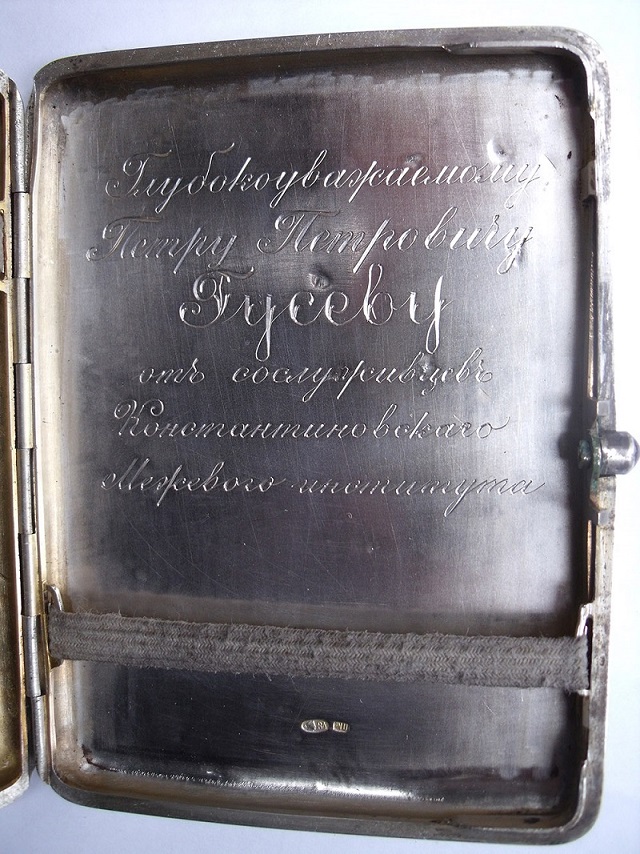 Глубокоуважаемому
Петру Петровичу
Гусеву
отъ сослуживцевъ
Константиновскаго
Межевого института
84